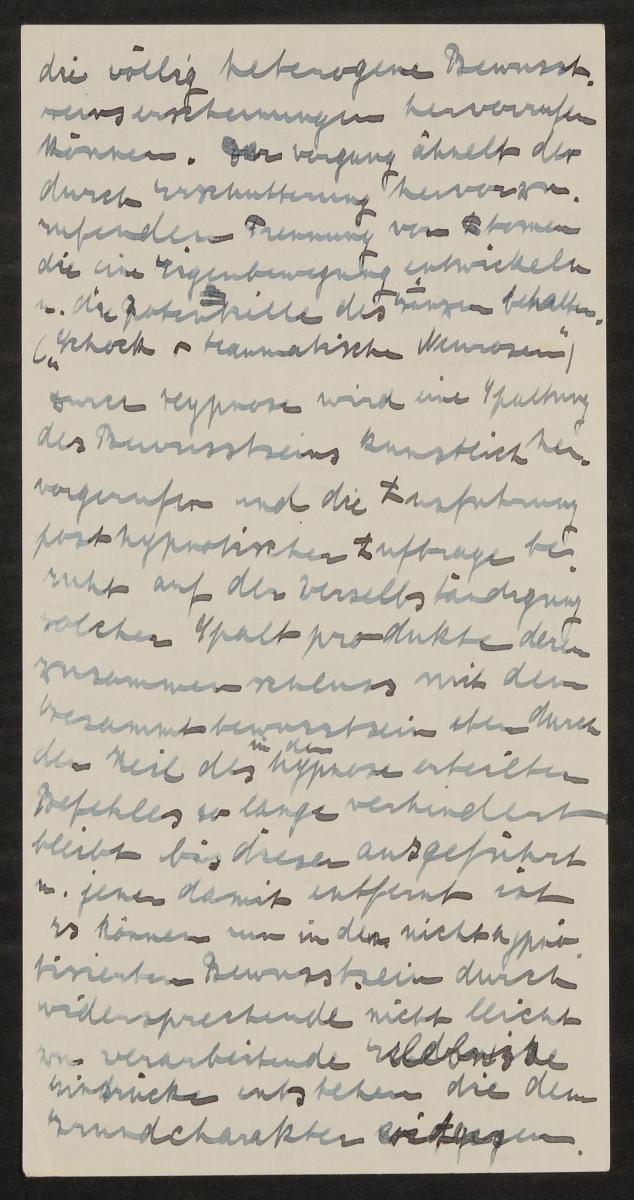 die völlig heterogene Bewusst-
seinserscheinungen hervorrufen
können. Der vorgang ähnelt der
durch Erschutterung hervorzu-
rufenden Trennung von Atomen
die eine Eigenbewegung entwickeln
u. die potentielle des Ganzen behalten.
("Schock & traumatische Neurosen")
Durch Hypnose wird eine Spaltung
des Bewusstseins kunstlich her-
vorgerufen und die Ausfuhrung
posthypnotischer Auftrage be-
ruht auf der Verselbständigung
solcher Spaltprodukte deren
Zusammenschluss mit dem
Gesammtbewusstsein eben durch
den Keil des in der hypnose erteilten
Befehles so lange verhindert
bleibt bis dieser ausgeführt
u. jener damit entfernt ist
Es können nun in dem nichthypno-
tisierten Bewusstsein durch
widersprechende nicht leicht
zu verarbeitende
Eindrücke entstehen die dem
Grundcharakter entgegen.